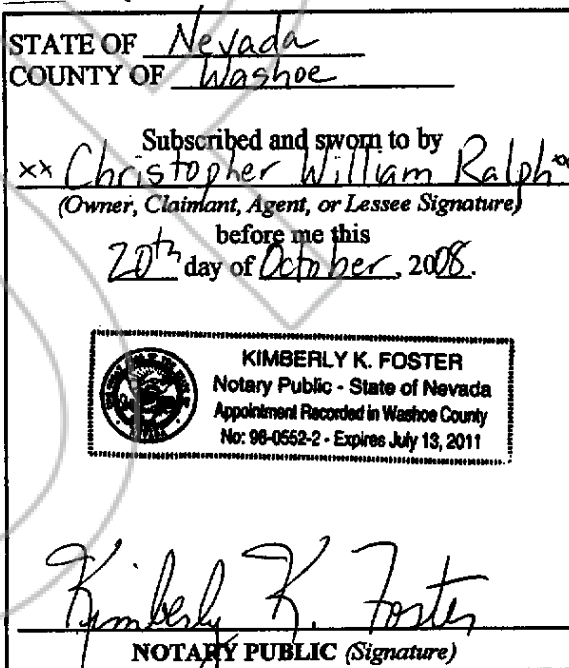 STATE OF Nevada
COUNTY OF Washoe
Subscribed and sworn to by
xx Christopher William Ralph xx
(Owner, Claimant, Agent, or Lessee Signature)
before me this
20th day of October, 2008.
KIMBERLY K. FOSTER
Notary Public - State of Nevada
Appointment Recorded in Washoe County
No: 98-0552-2 - Expires July 13, 2011
Kimberly K. Foster
NOTARY PUBLIC (Signature)